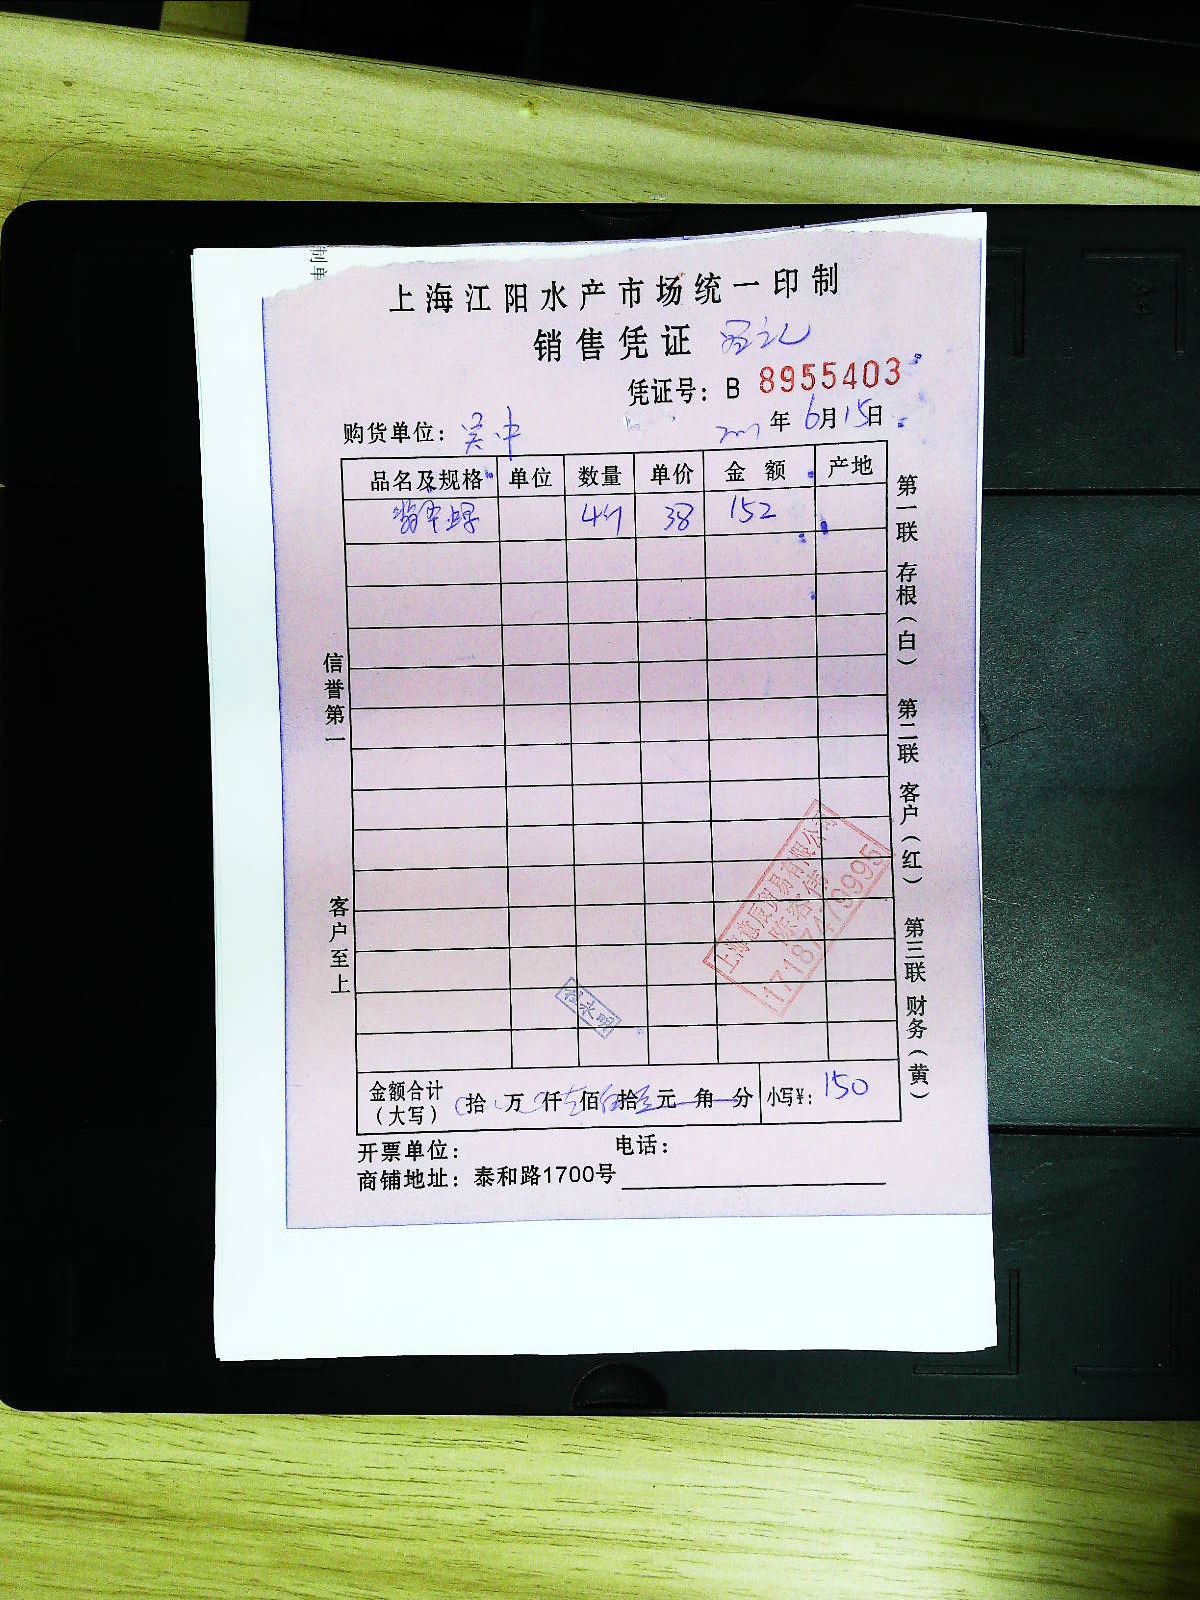 制单
上海江阳水产市场统一印制
销售凭证
凭证号：B 8955403
购货单位：吴中 年 6月15日
品名及规格 单位 数量 单价 金额 产地
4斤 38 152
信誉第一
客户至上
第一联 存根（白） 第二联 客户（红） 第三联 财务（黄）
贸易有限公司
17187479995
金额合计（大写） 拾 万 仟 佰 拾 元 角 分 小写¥：150
开票单位： 电话：
商铺地址：泰和路1700号